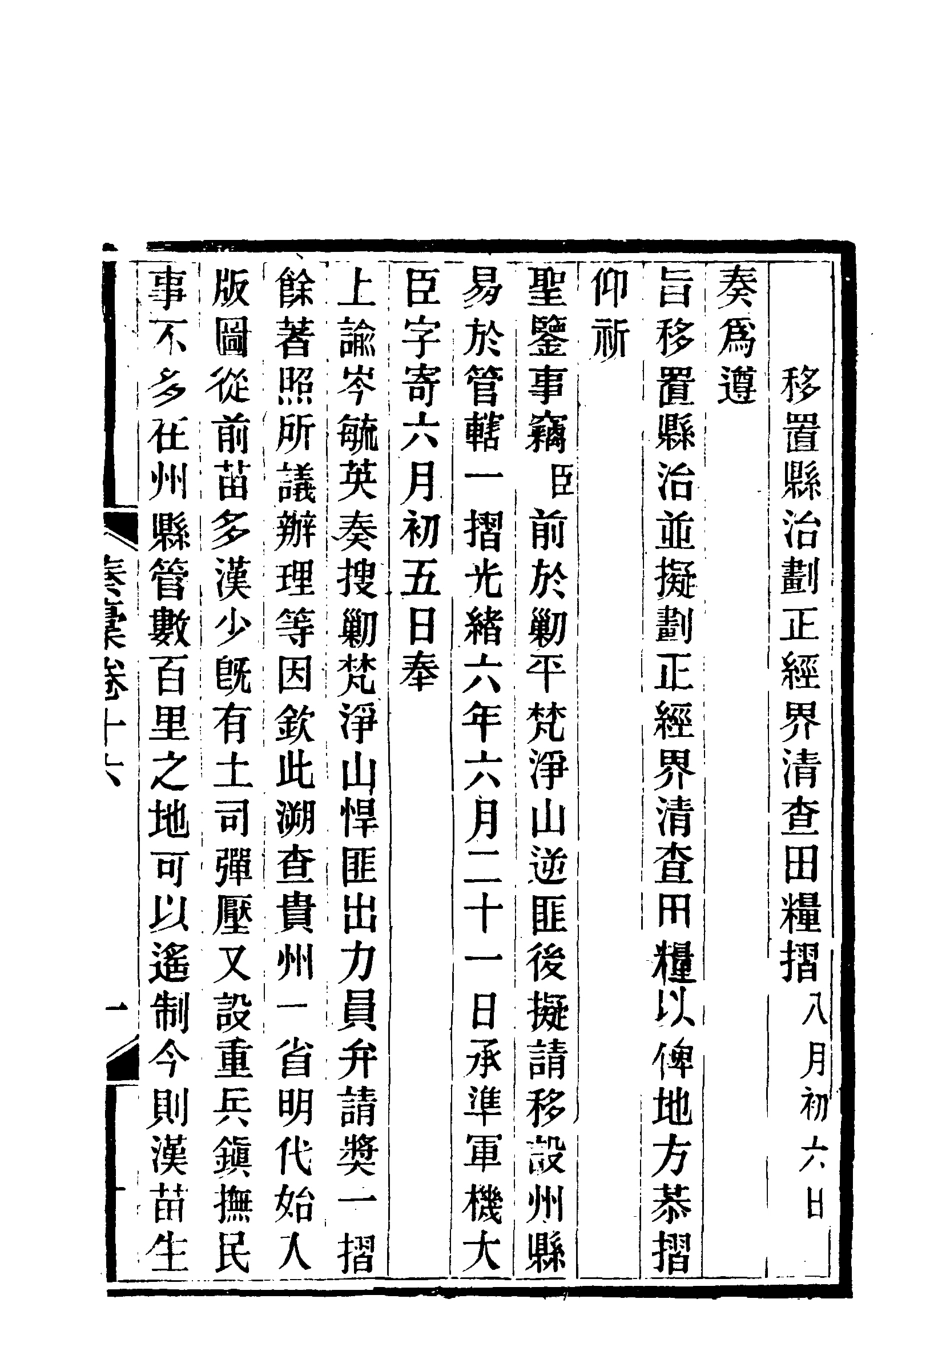 移置縣治劃正經界清查田糧摺八月初六日
奏爲遵
旨移置縣治並擬劃正經界清查田糧以俾地方恭摺
仰祈
聖鑒事竊臣前於剿平梵淨山逆匪後擬請移設州縣
易於管轄一摺光緒六年六月二十一日承準軍機大
臣字寄六月初五日奉
上諭岑毓英奏搜剿梵淨山悍匪出力員弁請獎一摺
餘著照所議辦理等因欽此溯查貴州一省明代始入
版圖從前苗多漢少旣有土司彈壓又設重兵鎭撫民
事不多在州縣管數百里之地可以遙制今則漢苗生
奏稾卷十六 一